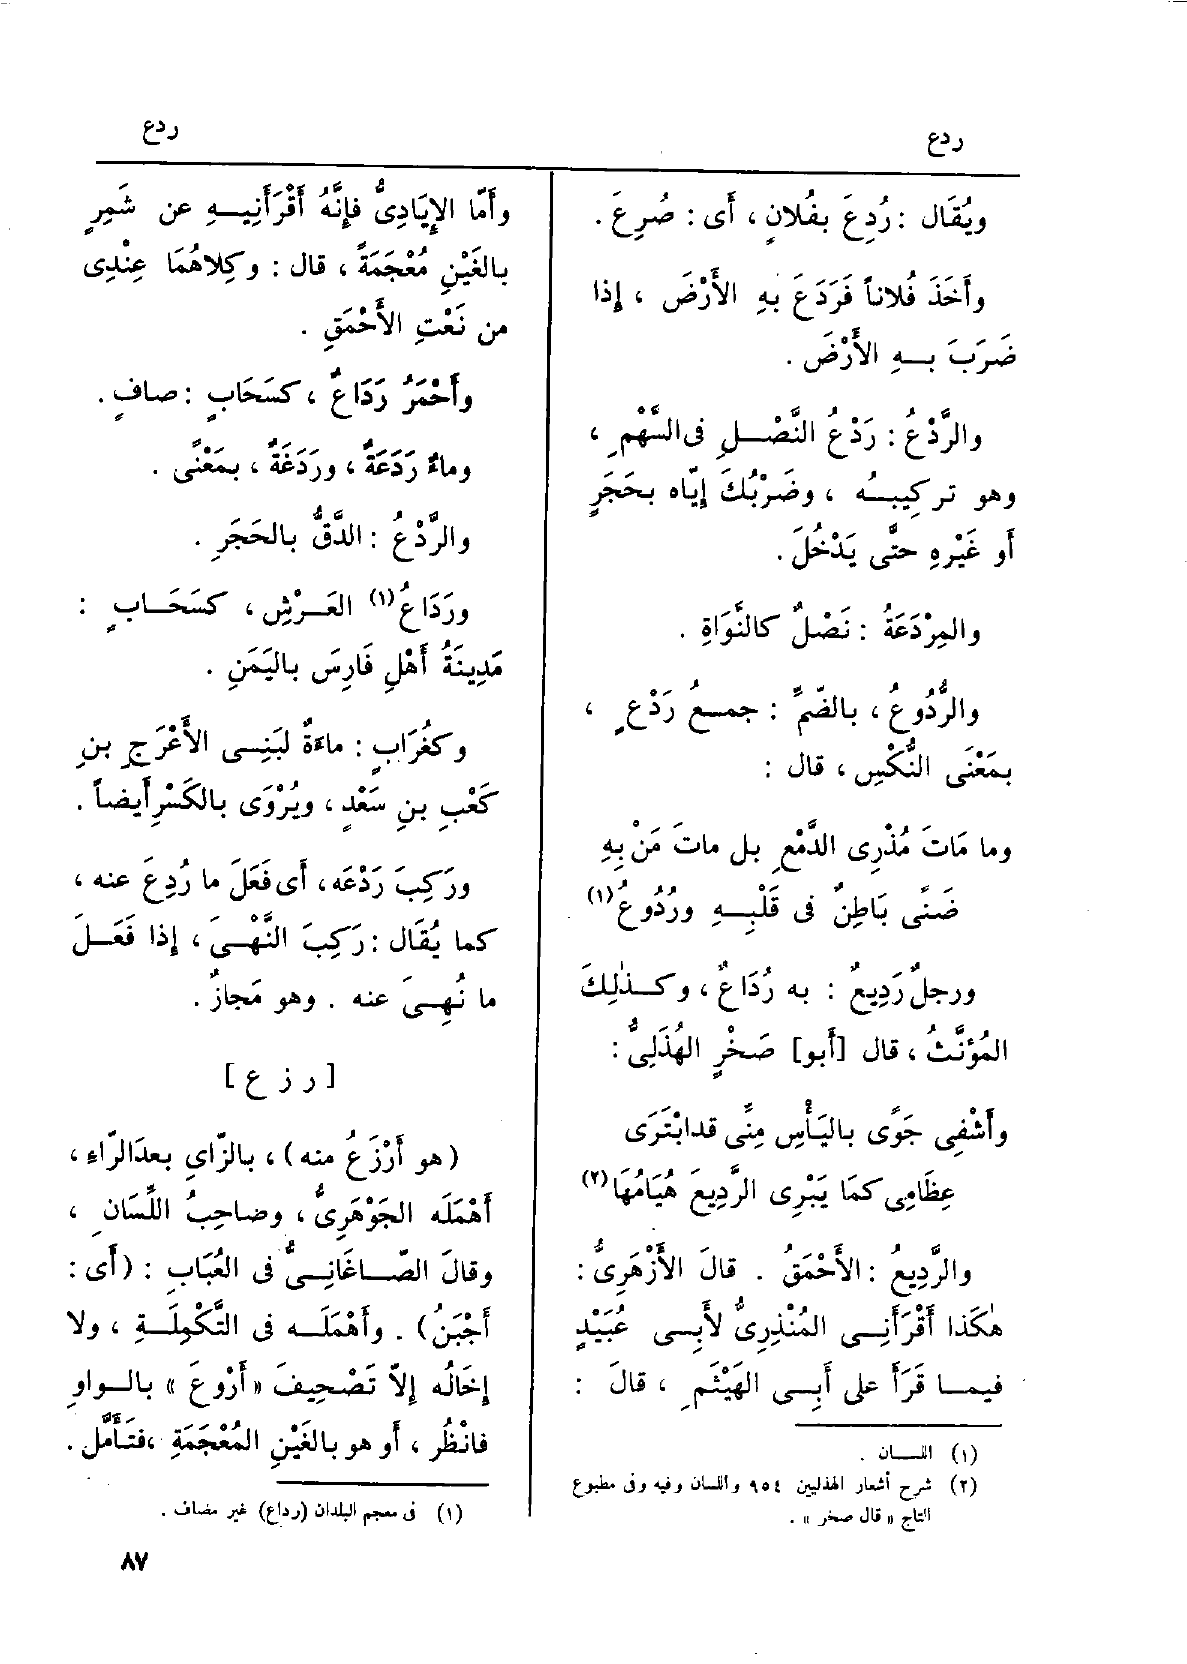 ردع
ردع
ويُقَال : رُدِعَ بفُلانٍ ، أَى : صُرِعَ .
وأَخَذَ فُلاناً فَرَدَعَ بهِ الأَرْضَ ، إِذا
ضَرَبَ بــهِ الأَرْضَ .
والرَّدْعُ : رَدْعُ النَّصْـلِ فى السَّهْمِ ،
وهو تركِيبـُه ، وضَرْبُكَ إِيّاه بحَجَرٍ
أَو غَيْرِهِ حتَّى يَدْخُلَ .
والمِرْدَعَةُ : نَصْلٌ كالنَّوَاةِ .
والرُّدُوعُ ، بالضَّمِّ : جمـعُ رَدْعٍ ،
بمَعْنَى النُّكْسِ ، قال :
وما مَاتَ مُذْرِى الدَّمْعِ بل ماتَ مَنْ بِهِ
ضَنًى بَاطِنٌ فى قَلْبِـهِ ورُدُوعُ (١)
ورجلٌ رَدِيعٌ : به رُدَاعٌ ، وكـذٰلِكَ
المُؤنَّثُ ، قال [أَبو] صَخْرٍ الهُذَلِىُّ :
وأَشْفِى جَوًى باليَأْسِ مِنِّى قد ابْتَرَى
عِظَامِى كمَا يَبْرِى الرَّدِيعَ هُيَامُهَا (٢)
والرَّدِيعُ : الأَحْمَقُ . قالَ الأَزْهَرِىُّ :
هٰكَذا أَقْرَأَنِـى المُنْذِرِىُّ لأَبِـى عُبَيْدٍ
فيمـا قَرَأَ على أَبِـى الهَيْثَمِ ، قالَ :
(١) اللسـان .
(٢) شرح أشعار الهذليين ٩٥٤ واللسان وفيه وفى مطبوع
التاج « قال صخر » .
وأَمّا الإِيَادِىُّ فإِنَّهُ أَقْرَأَنِيـهِ عن شَمِرٍ
بالغَيْنِ مُعْجَمَةً ، قال : وكِلاهُمَا عِنْدِى
من نَعْتِ الأَحْمَقِ .
وأَحْمَرُ رَدَاعٌ ، كسَحَابٍ : صافٍ .
وماءٌ رَدَعَةٌ ، ورَدَغَةٌ ، بمَعْنًى .
والرَّدْعُ : الدَّقُّ بالحَجَرِ .
ورَدَاعُ (١) العَـرْشِ ، كسَحَـابٍ :
مَدِينَةُ أَهْلِ فَارِسَ باليَمَنِ .
وكغُرَابٍ : ماءَةٌ لبَنِـى الأَعْرَجِ بنِ
كَعْبِ بنِ سَعْدٍ ، ويُرْوَى بالكَسْرِ أَيضاً .
ورَكِبَ رَدْعَه ، أَى فَعَلَ ما رُدِعَ عنه ،
كما يُقَال : رَكِبَ النَّهْـىَ ، إِذا فَعَـلَ
ما نُهِـىَ عنه . وهو مَجازٌ .
[ ر ز ع ]
(هو أَرْزَعُ منه) ، بالزّاىِ بعدَ الرّاءِ ،
أَهْمَلَه الجَوْهَرِىُّ ، وصاحِبُ اللِّسَانِ ،
وقالَ الصّـاغَانِـىُّ فى العُبَابِ : (أَى :
أَجْبَنُ) . وأَهْمَلَـه فى التَّكْمِلَـةِ ، ولا
إِخَالُه إِلاّ تَصْحِيفَ « أَرْوع » بالـواوِ
فانْظُر ، أَو هو بالغَيْنِ المُعْجَمَةِ ، فتَأَمَّل .
(١) فى معجم البلدان (رداع) غير مضاف .
٨٧